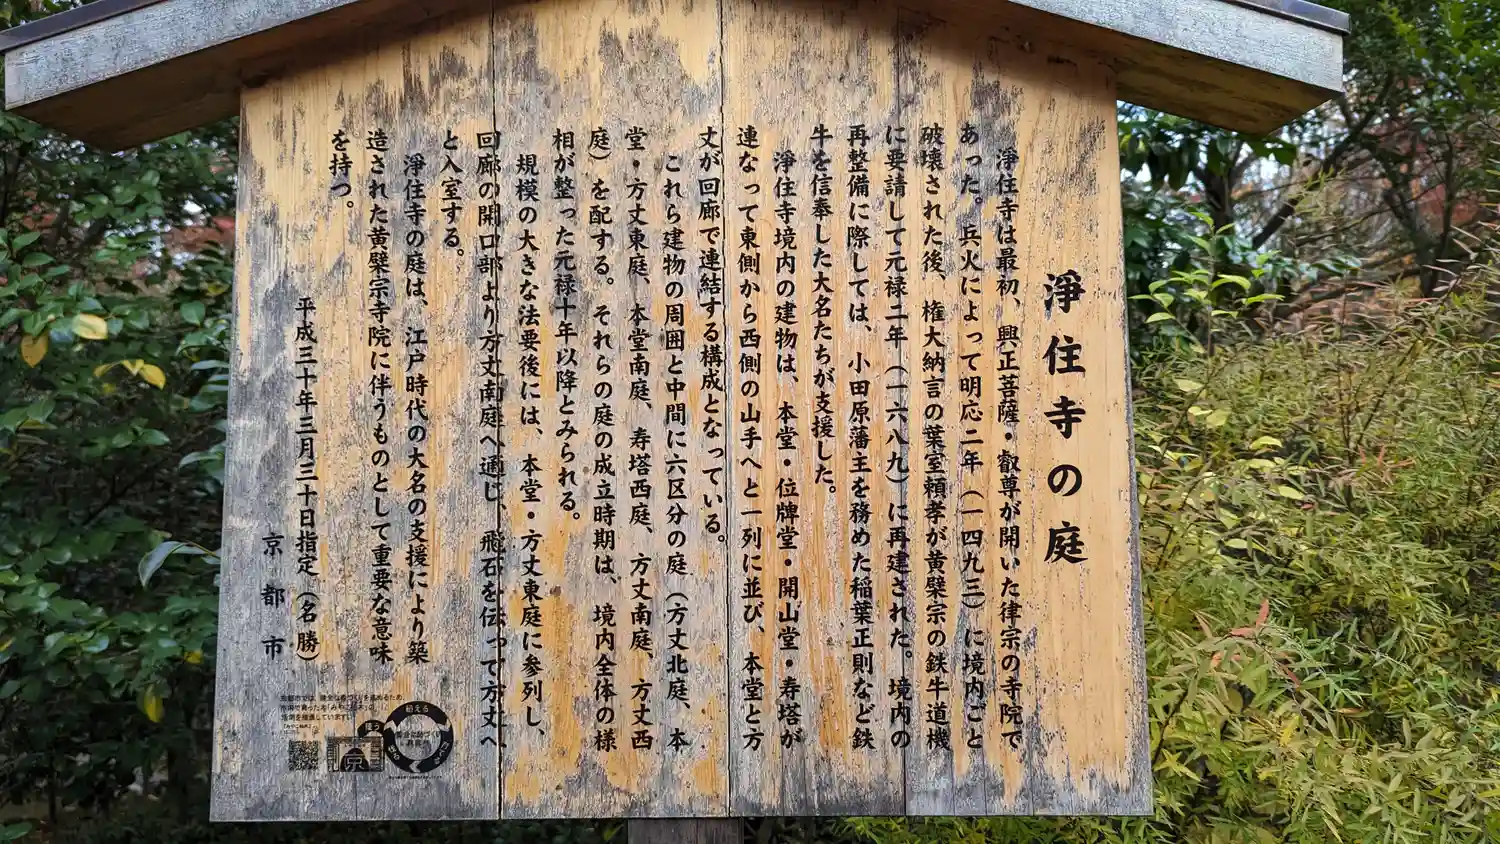 淨住寺の庭
淨住寺は最初、興正菩薩・叡尊が開いた律宗の寺院で
あった。兵火によって明応二年（一四九三）に境内ごと
破壊された後、権大納言の葉室頼孝が黄檗宗の鉄牛道機
に要請して元禄二年（一六八九）に再建された。境内の
再整備に際しては、小田原藩主を務めた稲葉正則など鉄
牛を信奉した大名たちが支援した。
淨住寺境内の建物は、本堂・位牌堂・開山堂・寿塔が
連なって東側から西側の山手へと一列に並び、本堂と方
丈が回廊で連結する構成となっている。
これら建物の周囲と中間に六区分の庭（方丈北庭、本
堂・方丈東庭、本堂南庭、寿塔西庭、方丈南庭、方丈西
庭）を配する。それらの庭の成立時期は、境内全体の様
相が整った元禄十年以降とみられる。
規模の大きな法要後には、本堂・方丈東庭に参列し、
回廊の開口部より方丈南庭へ通じ、飛石を伝って方丈へ
と入室する。
淨住寺の庭は、江戸時代の大名の支援により築
造された黄檗宗寺院に伴うものとして重要な意味
を持つ。
平成三十年三月三十日指定（名勝）
京都市
京